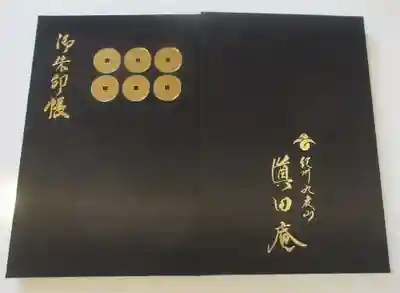 御朱印帳
紀州九度山
眞田庵